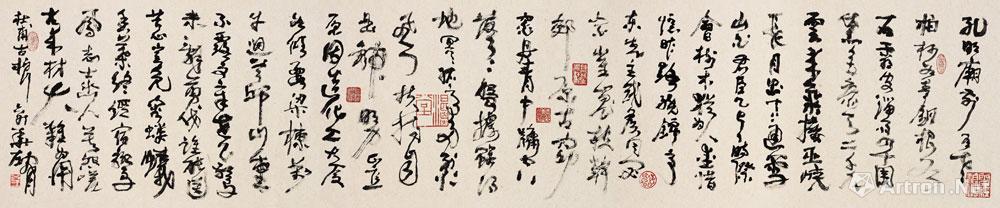 孔明廟前有老
柏柯如青銅根如
石霜皮溜雨四十圍
黛色參天二千尺
雲來氣接巫峽
長月出寒通雪
山白君臣已與時際
會樹木猶為人愛惜
憶昨路繞錦亭
東先主武侯同閟
宮崔嵬枝幹
郊原古窈
窕丹青戶牖空
落落盤據雖得
地冥冥孤高多烈
風扶持自
是神明力正直
原因造化工大廈
如傾要梁棟萬
牛迴首丘山重
不露文章世已驚
未辭剪伐誰能送
苦心豈免容螻蟻
香葉終經宿鸞
鳳志士幽人莫怨嗟
古來材大難為用
杜甫古柏行
Artron.Net